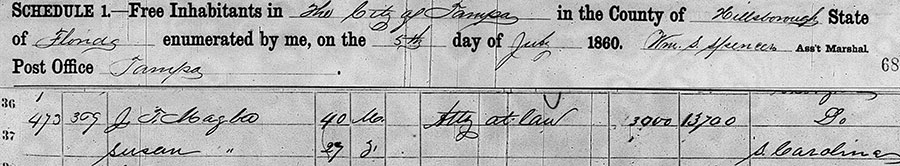 SCHEDULE 1.—Free Inhabitants in The City of Tampa in the County of Hillsborough State
of Florida enumerated by me, on the 5th day of July 1860. Wm. S. Spencer Ass't Marshal
Post Office Tampa . 68
36 1 473 399 J. T. Magbee 40 M. Atty at law 3900 13700 Do
37 Susan " 27 S. Carolina